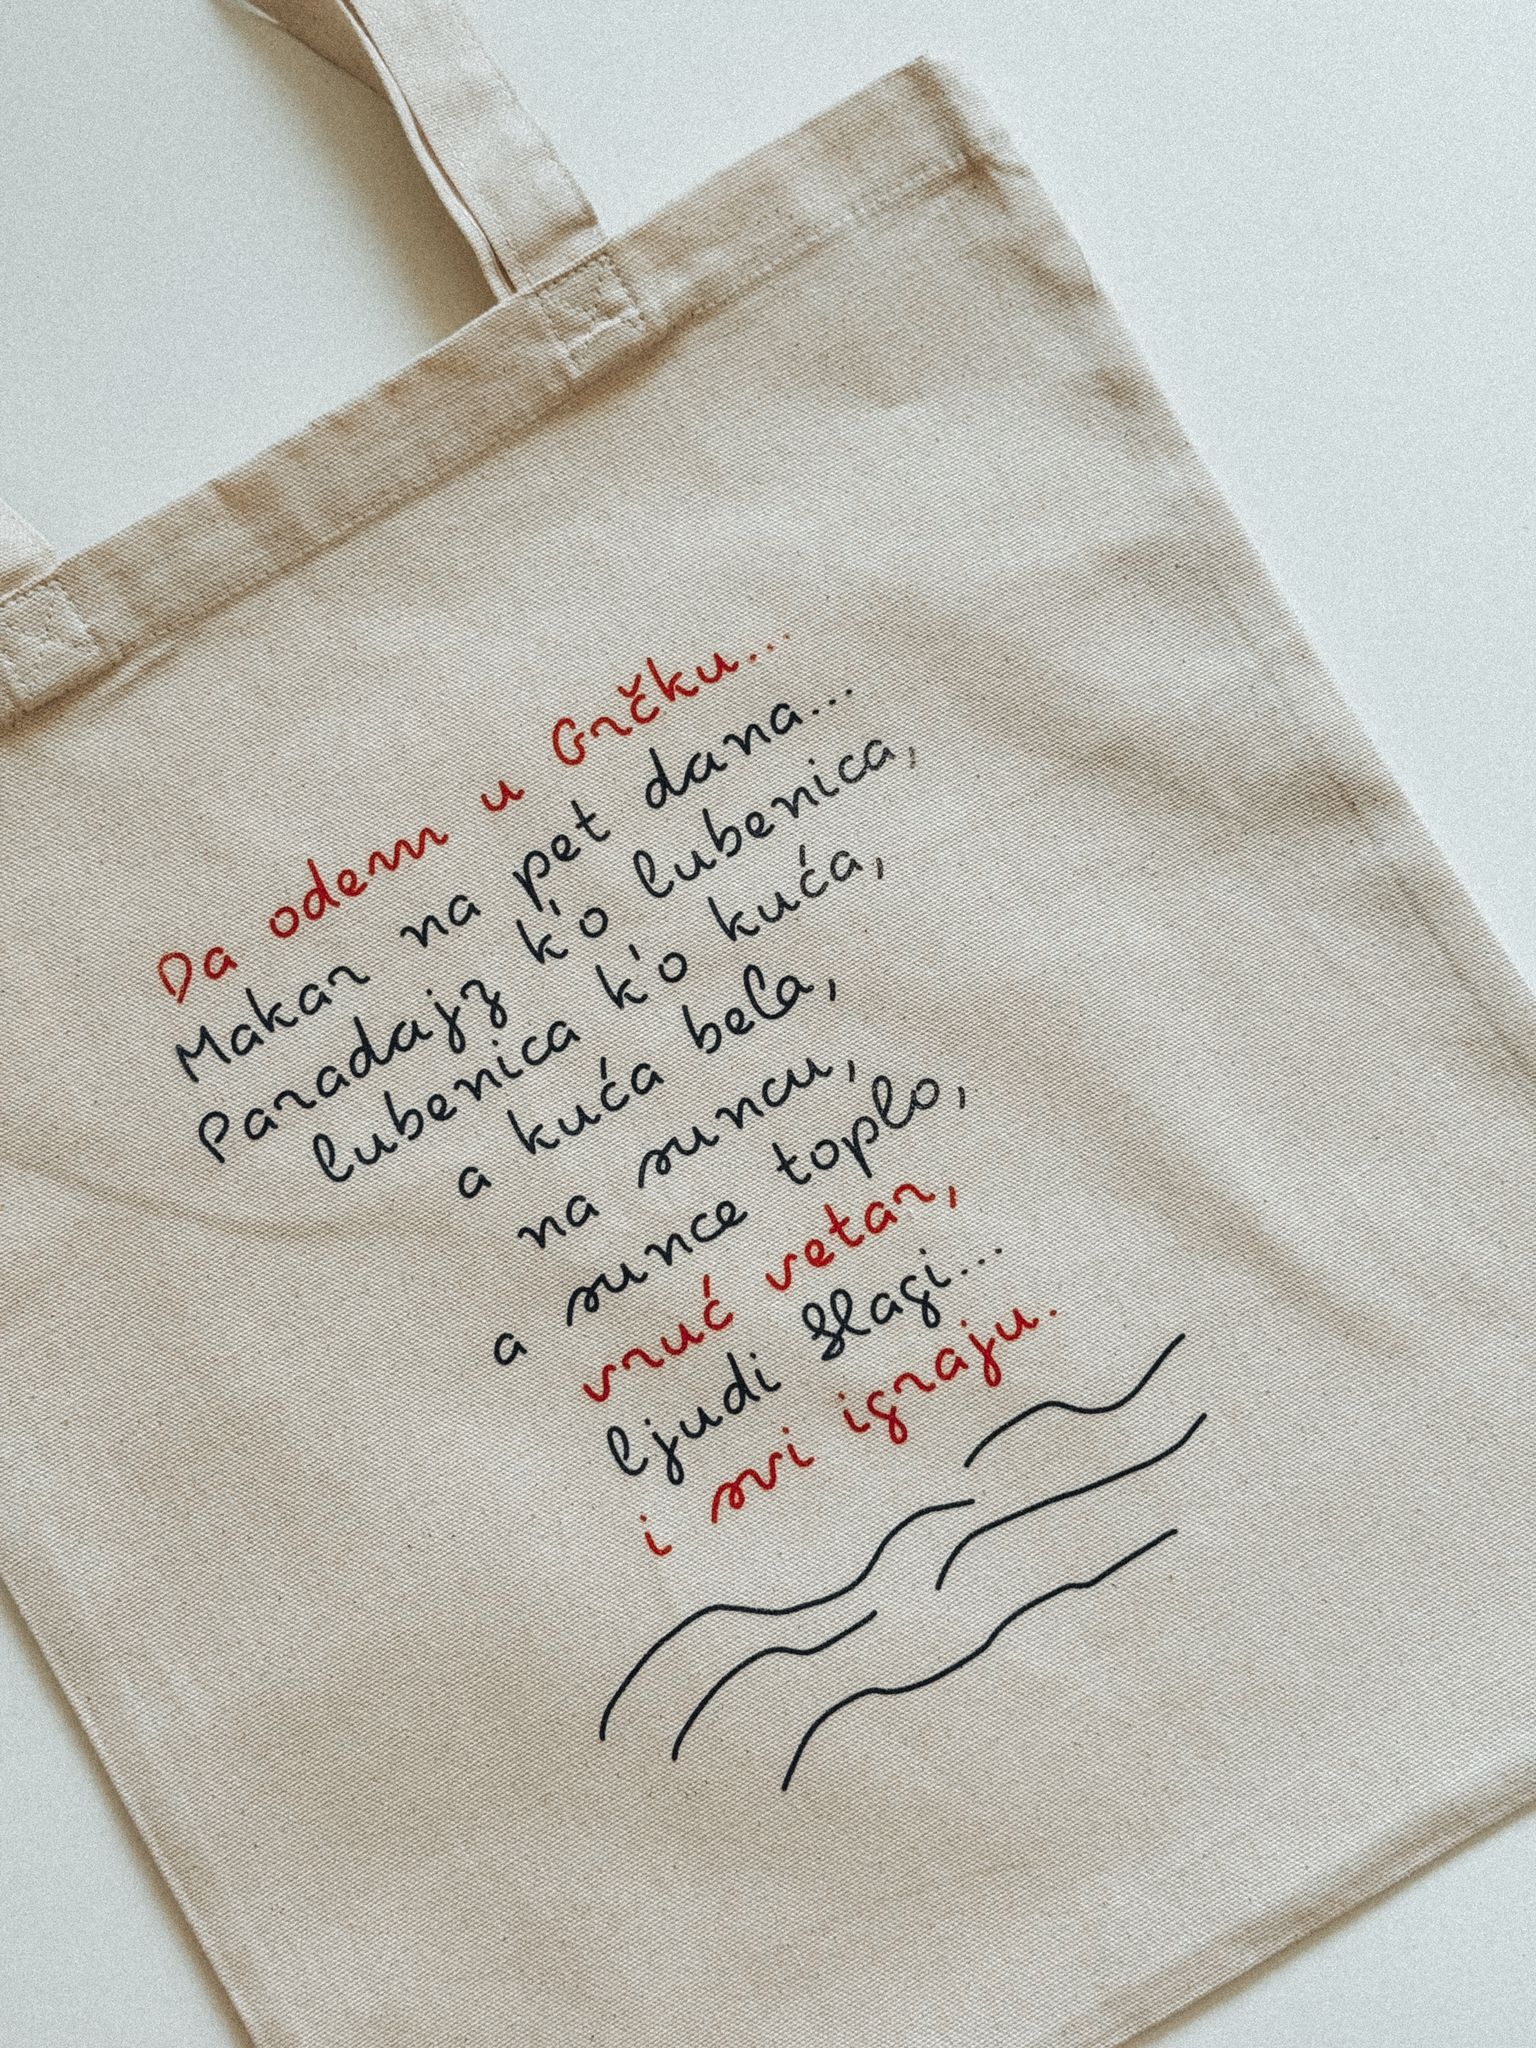 Da odem u Grčku...
Makar na pet dana...
Paradajz k'o lubenica,
lubenica k'o kuća,
a kuća bela,
na suncu,
a sunce toplo,
vruć vetar,
ljudi blagi...
i svi igraju.